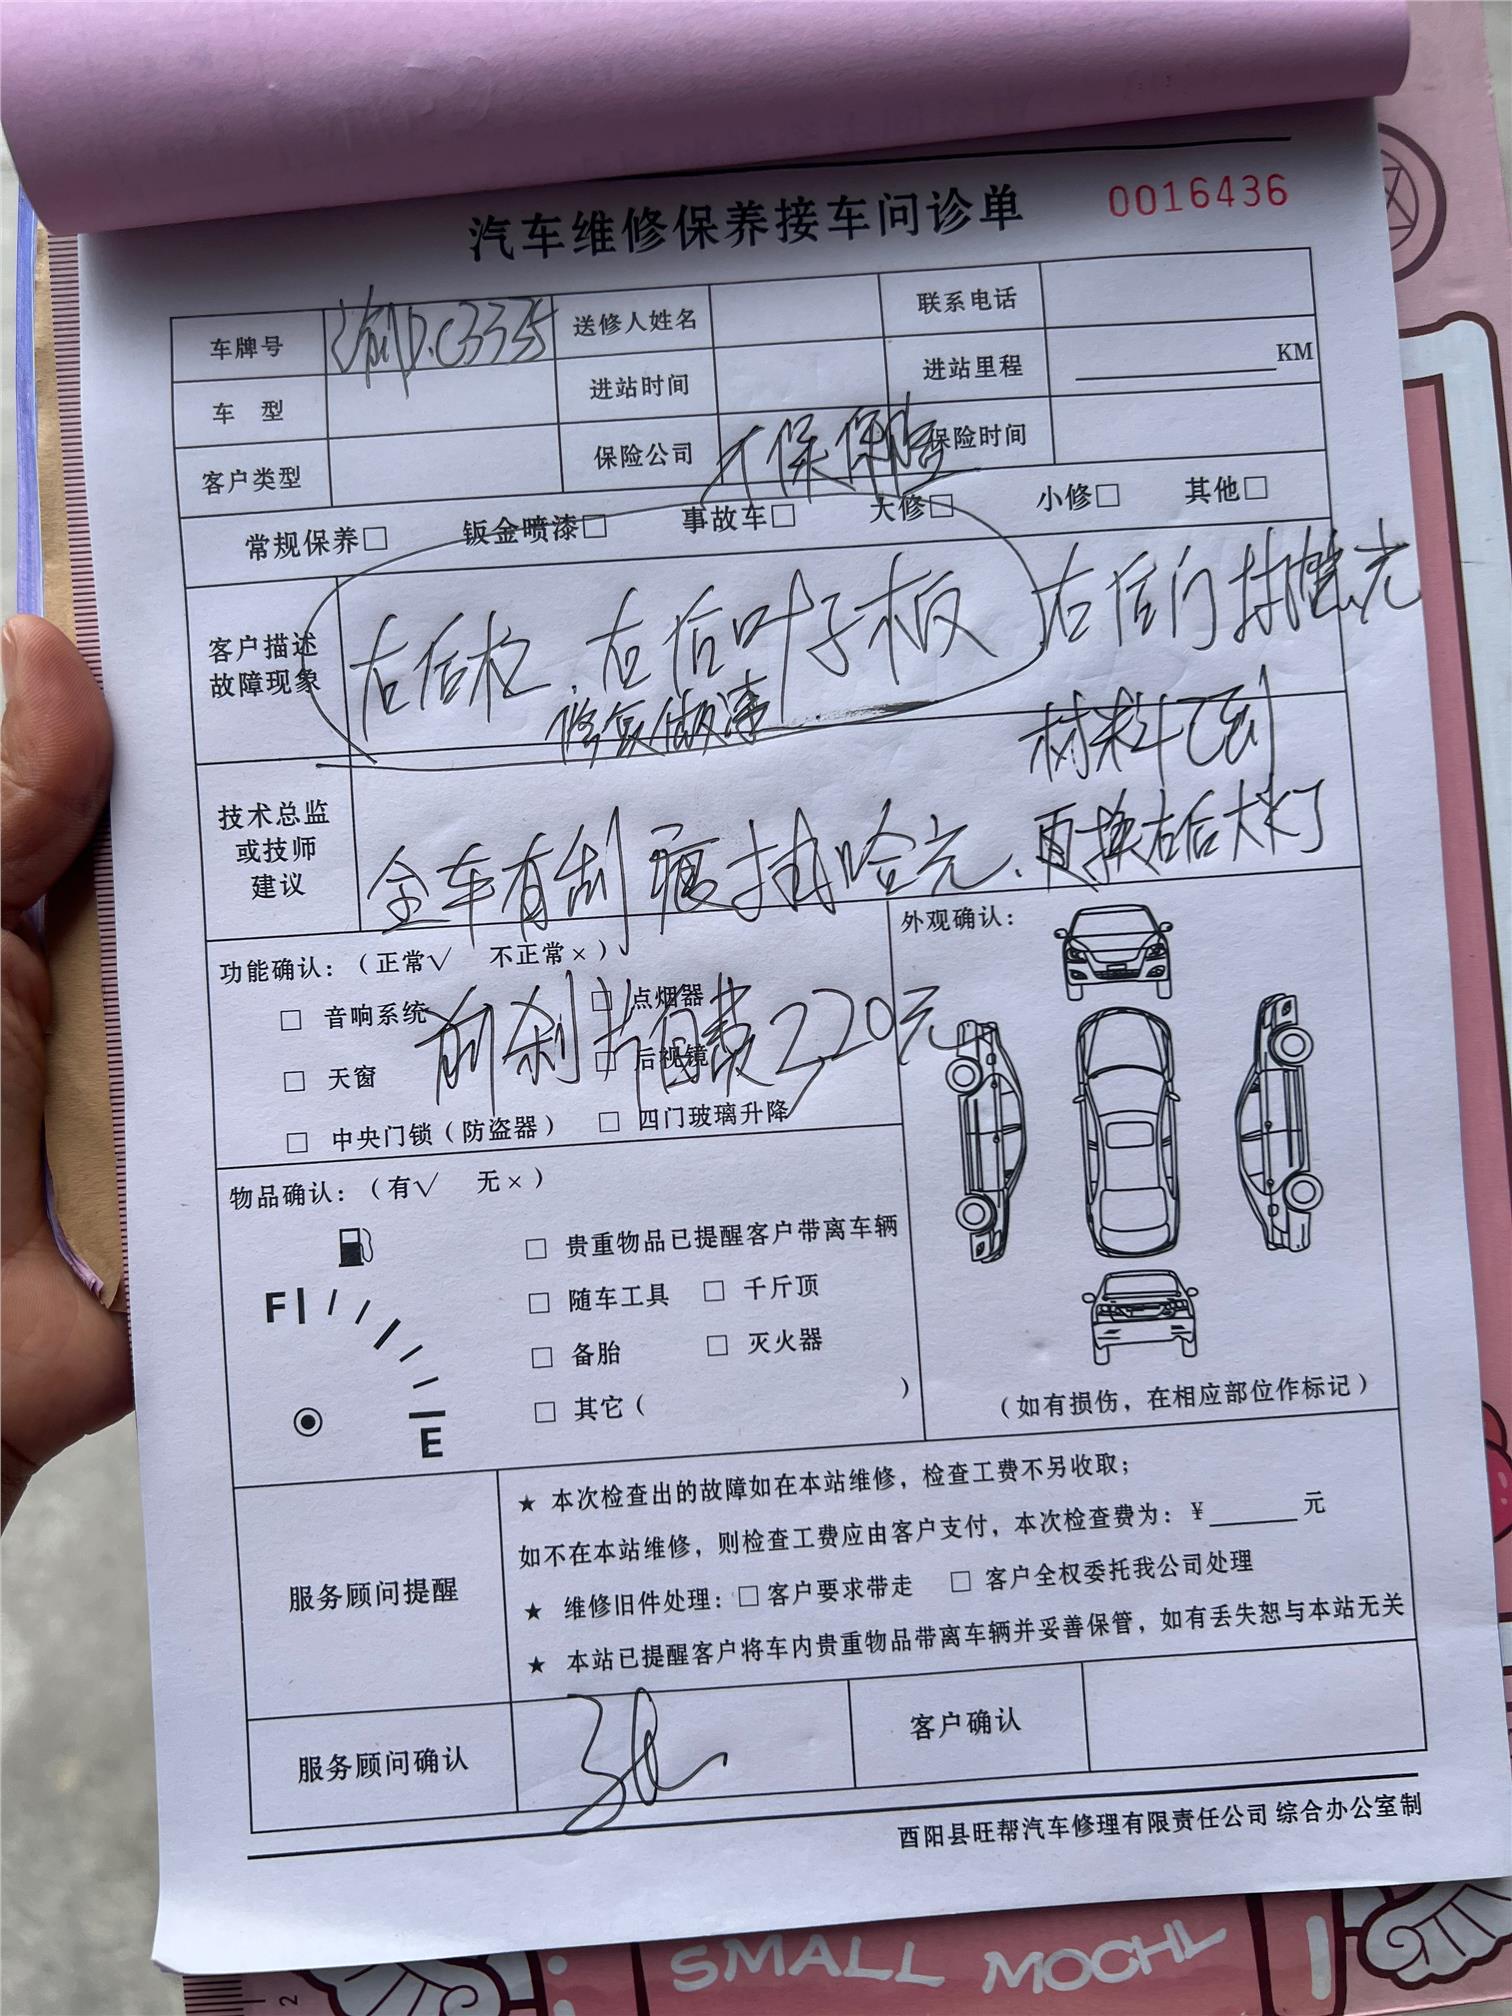 汽车维修保养接车问诊单
0016436
车牌号 渝D.C3335 送修人姓名 联系电话
车 型 进站时间 进站里程 KM
客户类型 保险公司 保险 保险时间
常规保养□ 钣金喷漆□ 事故车□ 大修□ 小修□ 其他□
客户描述
故障现象
右后杠、右后叶子板 右后门抛光
修复做漆
材料已到
技术总监
或技师
建议
全车有刮痕抛光、再换右后大灯
功能确认:(正常√ 不正常×)
□ 音响系统 □ 点烟器
□ 天窗 □ 后视镜
□ 中央门锁(防盗器) □ 四门玻璃升降
前刹片自费220元
外观确认:
(如有损伤,在相应部位作标记)
物品确认:(有√ 无×)
F
E
□ 贵重物品已提醒客户带离车辆
□ 随车工具 □ 千斤顶
□ 备胎 □ 灭火器
□ 其它( )
服务顾问提醒
★ 本次检查出的故障如在本站维修,检查工费不另收取;
如不在本站维修,则检查工费应由客户支付,本次检查费为:¥______元
★ 维修旧件处理:□客户要求带走 □ 客户全权委托我公司处理
★ 本站已提醒客户将车内贵重物品带离车辆并妥善保管,如有丢失恕与本站无关
服务顾问确认 客户确认
酉阳县旺帮汽车修理有限责任公司 综合办公室制
2
SMALL MOCHI